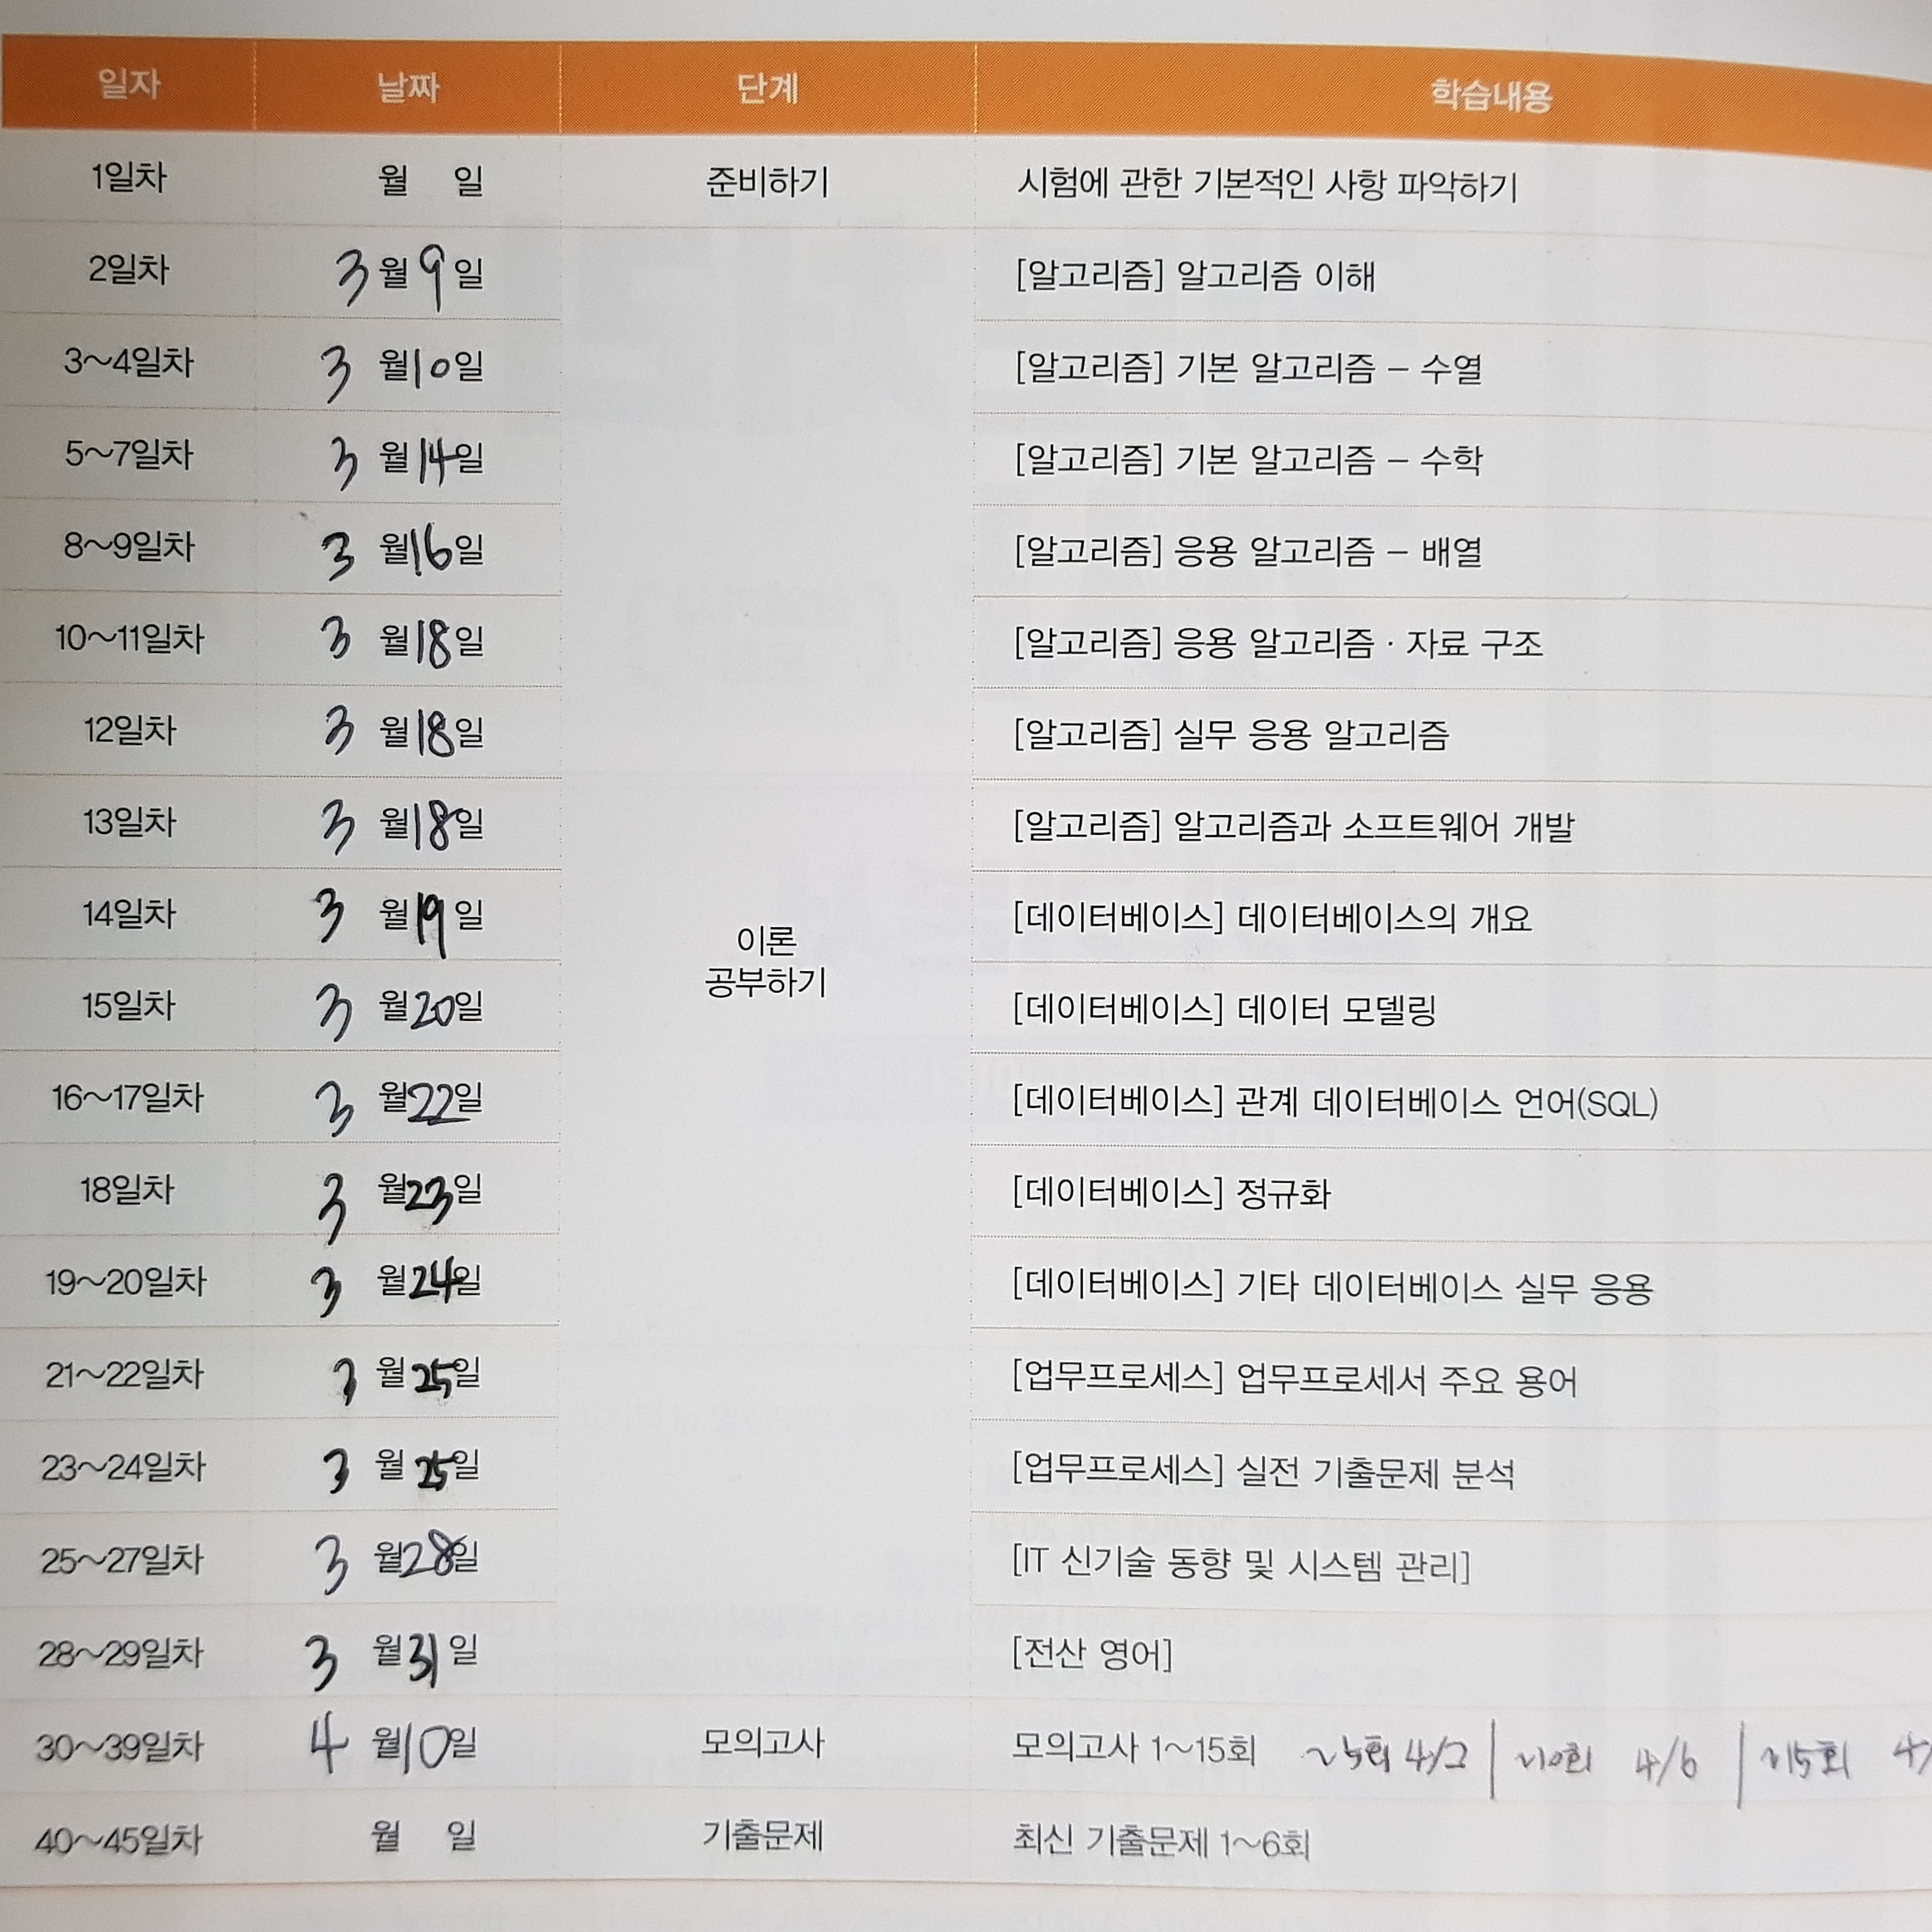 일자 날짜 단계 학습내용
1일차 월 일 준비하기 시험에 관한 기본적인 사항 파악하기
2일차 3월 9일 [알고리즘] 알고리즘 이해
3~4일차 3월 10일 [알고리즘] 기본 알고리즘 – 수열
5~7일차 3월 14일 [알고리즘] 기본 알고리즘 – 수학
8~9일차 3월 16일 [알고리즘] 응용 알고리즘 – 배열
10~11일차 3월 18일 [알고리즘] 응용 알고리즘 · 자료 구조
12일차 3월 18일 [알고리즘] 실무 응용 알고리즘
13일차 3월 18일 [알고리즘] 알고리즘과 소프트웨어 개발
14일차 3월 19일 [데이터베이스] 데이터베이스의 개요
이론
공부하기
15일차 3월 20일 [데이터베이스] 데이터 모델링
16~17일차 3월 22일 [데이터베이스] 관계 데이터베이스 언어(SQL)
18일차 3월 23일 [데이터베이스] 정규화
19~20일차 3월 24일 [데이터베이스] 기타 데이터베이스 실무 응용
21~22일차 3월 25일 [업무프로세스] 업무프로세서 주요 용어
23~24일차 3월 25일 [업무프로세스] 실전 기출문제 분석
25~27일차 3월 28일 [IT 신기술 동향 및 시스템 관리]
28~29일차 3월 31일 [전산 영어]
30~39일차 4월 10일 모의고사 모의고사 1~15회 ~5회 4/2 | ~10회 4/6 | ~15회 4/
40~45일차 월 일 기출문제 최신 기출문제 1~6회